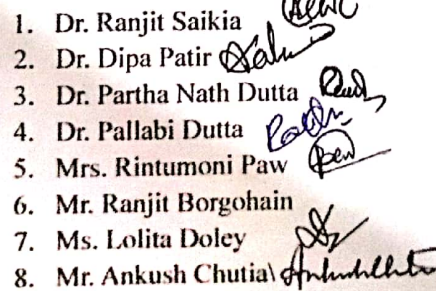 1. Dr. Ranjit Saikia
2. Dr. Dipa Patir
3. Dr. Partha Nath Dutta
4. Dr. Pallabi Dutta
5. Mrs. Rintumoni Paw
6. Mr. Ranjit Borgohain
7. Ms. Lolita Doley
8. Mr. Ankush Chutia\